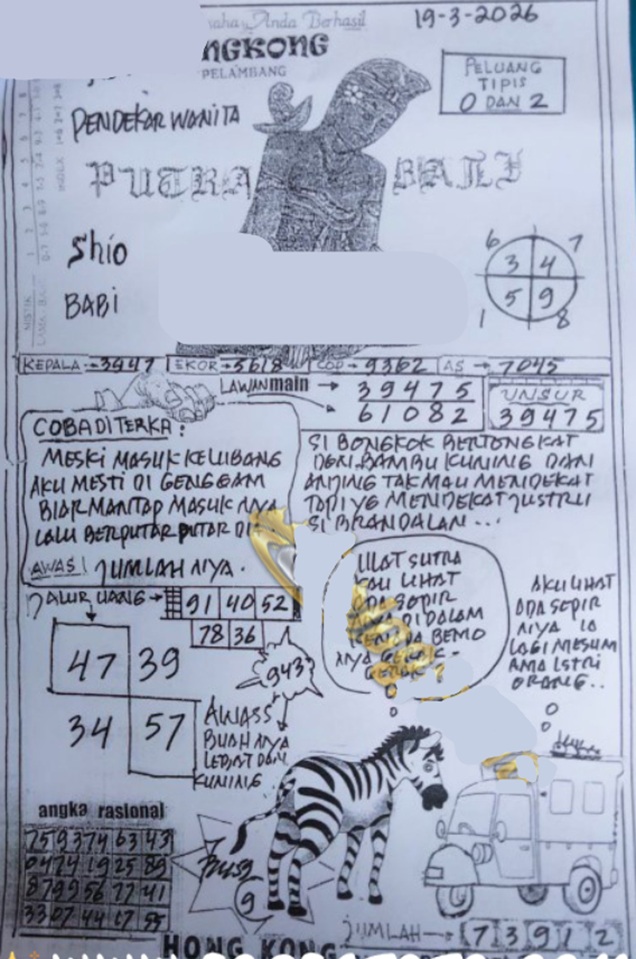 Anda Berhasil
19-3-2026
NGKONG
PELAMBANG
PELUANG
TIPIS
0 DAN 2
PENDEKAR WANITA
PUTRA BALI
Shio
BABI
6 7
3 4
5 9
1 8
KEPALA → 3947 EKOR → 5618 COP → 9362 AS → 7045
LAWAN main → 39475
61082
UNSUR
39475
COBA DITERKA :
MESKI MASUK KELUBANG
AKU MESTI DI GENGGAM
BIAR MANTAP MASUK NYA
LALU BERPUTAR PUTAR DI
AWAS! JUMLAH NYA.
SI BONGKOK BERTONGKAT
DERI BAMBU KUNING DAN
ANJING TAK MAU MENDEKAT
TAPI YG MENDEKAT JUSTRU
SI BRANDALAN ...
JALUR UANG → 91 40 52
78 36
47 39
34 57
943?
AWASS
BUAH NYA
LEBAT DAN
KUNING
ULAT SUTRA
KAU LIHAT
ADA SOPIR
DI DALAM
BEMO
NYA
AKU LIHAT
ADA SOPIR
NYA LA
LAGI MESUM
AMA ISTRI
ORANG..
angka rasional
75 93 74 63 43
04 74 19 25 89
87 99 56 77 41
33 07 44 67 95
9
JUMLAH → 7 3 9 1 2
HONG KONG